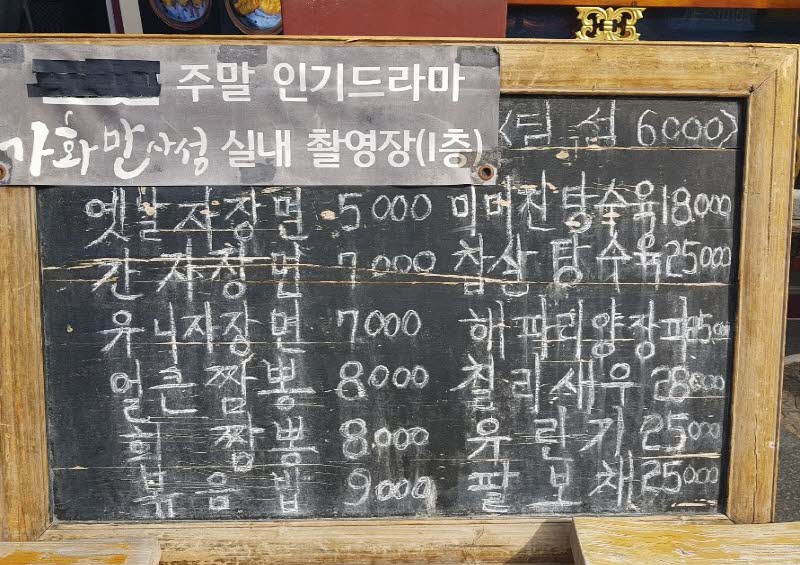 주말 인기드라마
가화만사성 실내 촬영장(1층)
<덤섬 6000>
옛날자장면 5000
간자장면 7000
유니자장면 7000
얼큰짬뽕 8000
회짬뽕 8000
볶음밥 9000
찹쌀탕수육 25000
해파리양장피
칠리새우 28000
유린기 25000
팔보채 25000